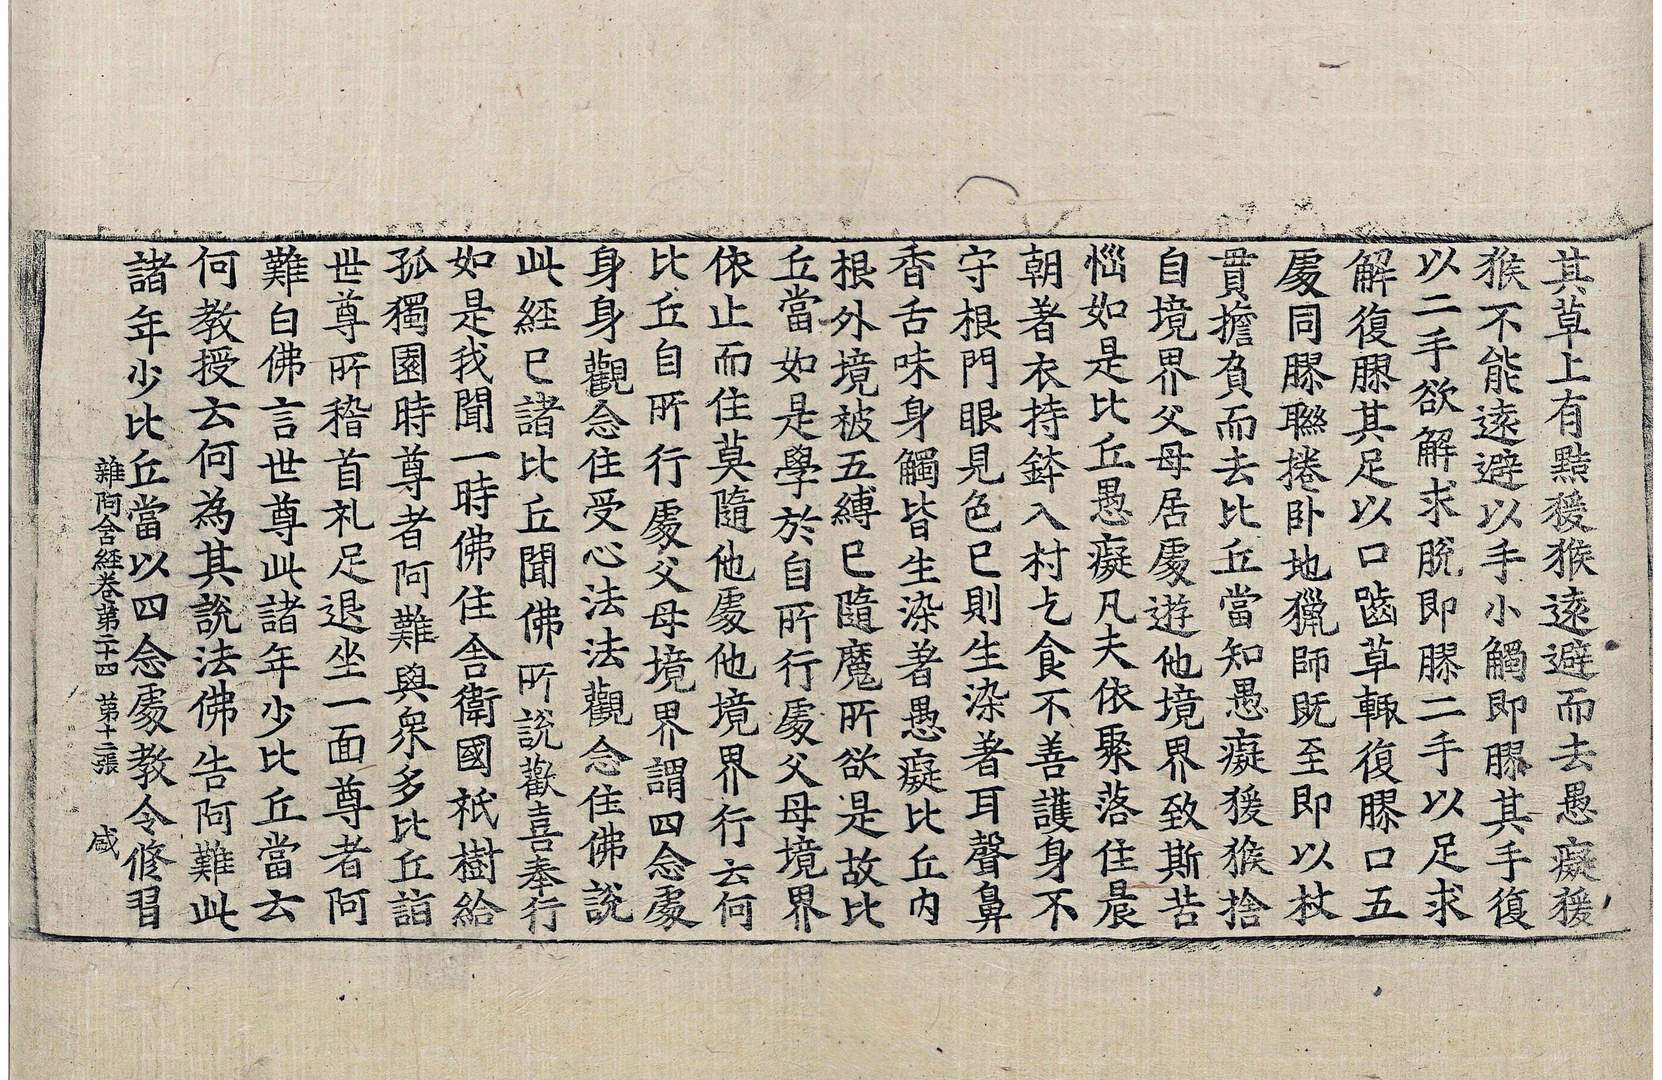 其草上有黠猨猴遠避而去愚癡猨
猴不能遠避以手小觸即膠其手復
以二手欲解求脫即膠二手以足求
解復膠其足以口齧草輙復膠口五
處同膠聮捲卧地獵師既至即以杖
貫擔負而去比丘當知愚癡猨猴捨
自境界父母居處遊他境界致斯苦
惱如是比丘愚癡凡夫依聚落住晨
朝著衣持鉢入村乞食不善護身不
守根門眼見色已則生染著耳聲鼻
香舌味身觸皆生染著愚癡比丘內
根外境被五縛已隨魔所欲是故比
丘當如是學於自所行處父母境界
依止而住莫隨他處他境界行云何
比丘自所行處父母境界謂四念處
身身觀念住受心法法觀念住佛說
此經已諸比丘聞佛所說歡喜奉行
如是我聞一時佛住舍衛國祇樹給
孤獨園時尊者阿難與衆多比丘詣
世尊所稽首礼足退坐一面尊者阿
難白佛言世尊此諸年少比丘當云
何教授云何為其說法佛告阿難此
諸年少比丘當以四念處教令修習
雜阿含經卷第二十四 第十二張 咸